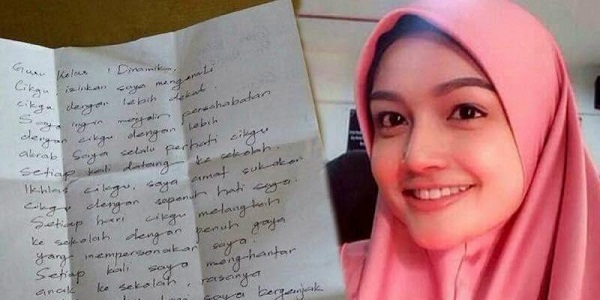 Guru Kelas 1 Dinamik.
Cikgu izinkan saya mengenali
cikgu dengan lebih dekat.
Saya ingin menjalin persahabatan
dengan cikgu dengan lebih
akrab. Saya selalu perhati cikgu
setiap kali datang ke sekolah.
Ikhlas cikgu, saya amat sukakan
cikgu dengan sepenuh hati saya.
Setiap hari cikgu melangkah
ke sekolah dengan penuh gaya
yang mempersonakan saya.
Setiap kali saya menghantar
anak ke sekolah, rasanya
saya bergerak